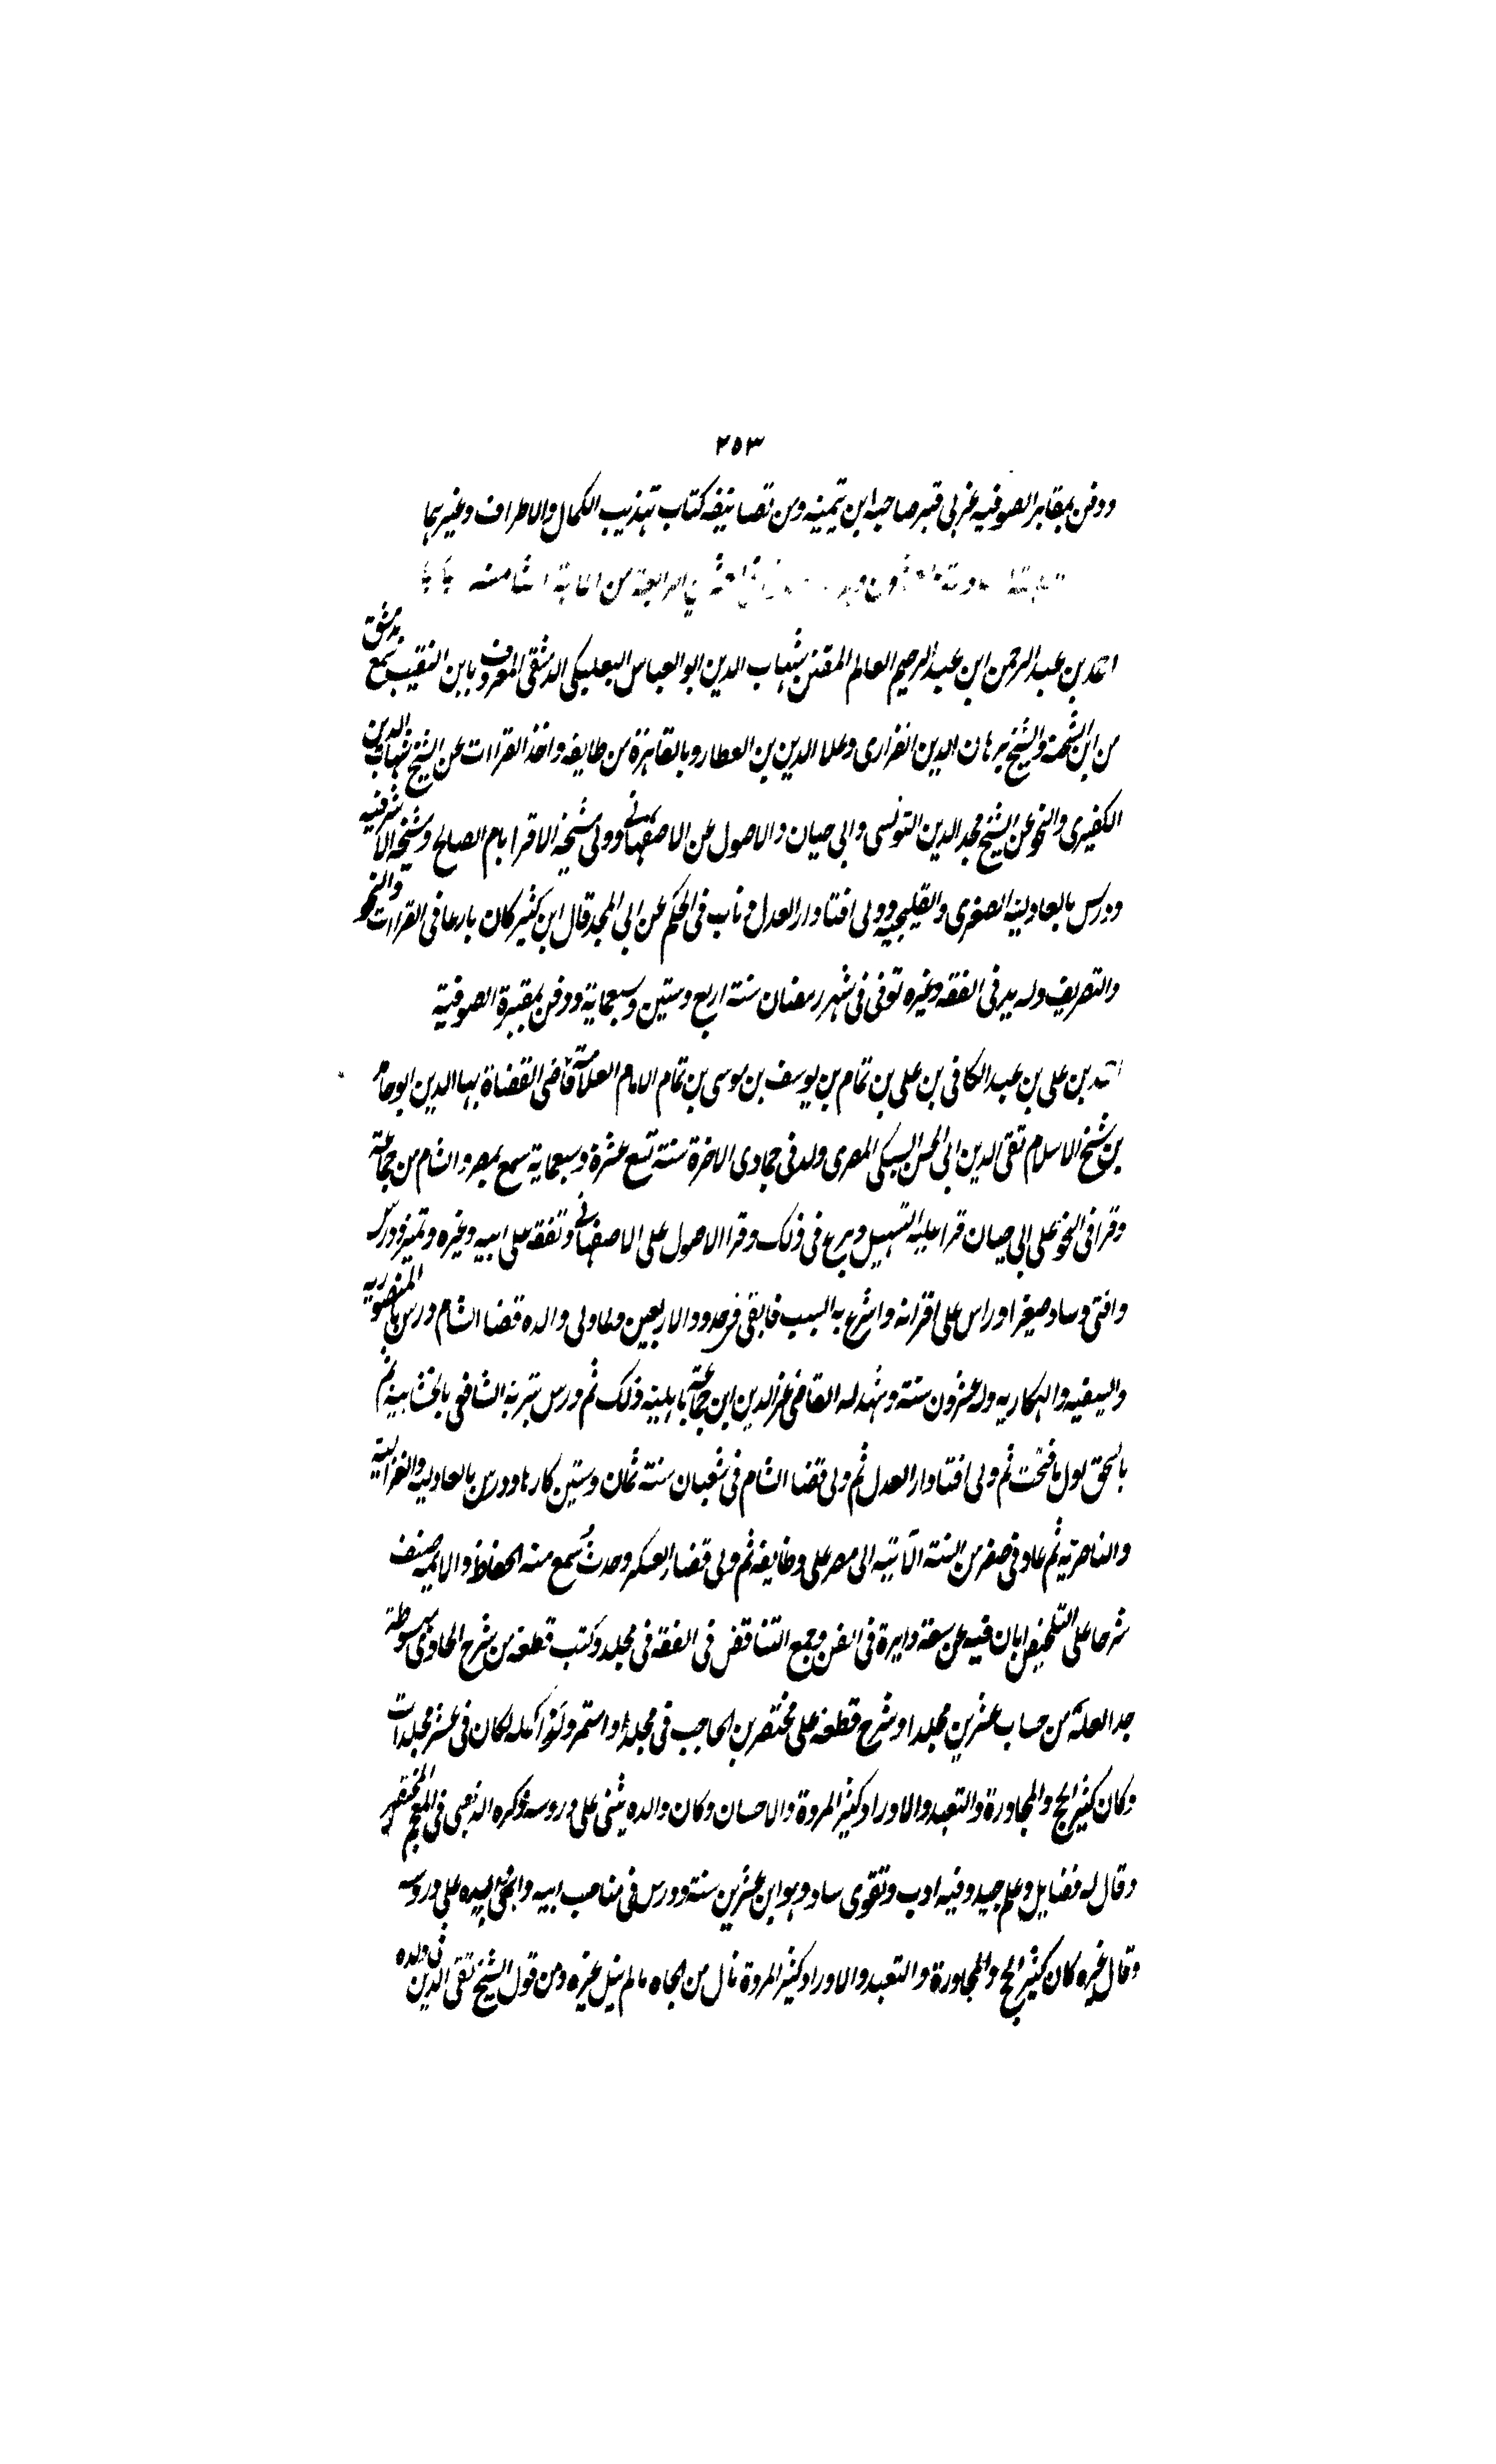 ٢٥٣
ودفن بمقابر الصوفيه غربى قبر صاحبه ابن تيميه ومن تصانيفه كتاب تهذيب الكمال والاطراف وغيرهما
الرابعة من الماية الثامنه
احمد بن عبد الرحمن ابن عبد الرحيم العالم المفنن شهاب الدين ابو العباس البعلبكى الدمشقى المعروف بابن النقيب سمع بدمشق
من ابن الشحنة والشيخ برهان الدين الفزارى وعلا الدين بن العطار وبالقاهرة من طايفه واخذ القراات عن الشيخ شهاب الدين
الكفيرى والنحو عن الشيخ مجد الدين التونسى وابى حيان والاصول عن الاصفهانى وولى مشيخة الاقرا بام الصالح ومشيخه الاشرفيه
ودرس بالعادليه الصغرى والقليجيه وولى افتا دار العدل وناب فى الحكم عن ابى المجد قال ابن كثير كان بارعا فى القراات والنحو
والتصريف وله يد فى الفقه وغيره توفى فى شهر رمضان سنة اربع وستين وسبعماية ودفن بمقبرة الصوفية
احمد بن على بن عبد الكافى بن على بن تمام بن يوسف بن موسى بن تمام الامام العلامة قاضى القضاة بها الدين ابو حامد
بن شيخ الاسلام تقى الدين ابى الحسن السبكى المصرى ولد فى جمادى الاخرة سنة تسع عشرة وسبعماية سمع بمصر والشام من جماعة
وقرا فى النحو على ابى حيان قرا عليه التسهيل وبرع فى ذلك وقرا الاصول على الاصفهانى وتفقه على ابيه وغيره وتميز ودرس
وافتى وساد صغيرا وراس على اقرانه واسرع به الشيب فانقى فى حدود الاربعين ولما ولى والده قضا الشام درس بالمنصوريه
والسيفيه والهكاريه وله عشرون سنة وشهد له القاضى عز الدين ابن جماعة باهليه ذلك ثم درس بتربة الشافعى بالخشابية ثم
بالشيخونية اول ما فتحت ثم ولى افتا دار العدل ثم ولى قضا الشام فى شعبان سنة ثمان وستين كارها ودرس بالعادليه والغزالية
والناصرية ثم عاد فى صفر من السنة الآتيه الى مصر على وظايفه ثم ولى قضا العسكر وحدث سمع منه الحفاظ والايمه صنف
شرحا على التلخيص ابان فيه عن سعة دايرة فى الفن وجمع التناقض فى الفقه فى مجلد وكتب قطعة من شرح الحاوى مبسوطة
جدا لعله من حساب عشرين مجلدا وشرح قطعة على مختصر بن الحاجب فى مجلد لو استمر ولو اكمله لكان فى عشر مجلدات
وكان كثير الحج والمجاورة والتعبد والاوراد كثير المروة والاحسان وكان والده يثنى على دروسه ذكره الذهبى فى المعجم المختصر
وقال له فضايل وعلم جيد وفيه ادب وتقوى ساد وهو ابن عشرين سنة ودرس فى مناصب ابيه واثنى على دروسه
وقال غيره كان كثير الحج والمجاورة والتعبد والاوراد كثير المروة نال من الجاه ما لم ينل غيره ومن قول الشيخ تقى الدين فى ولده